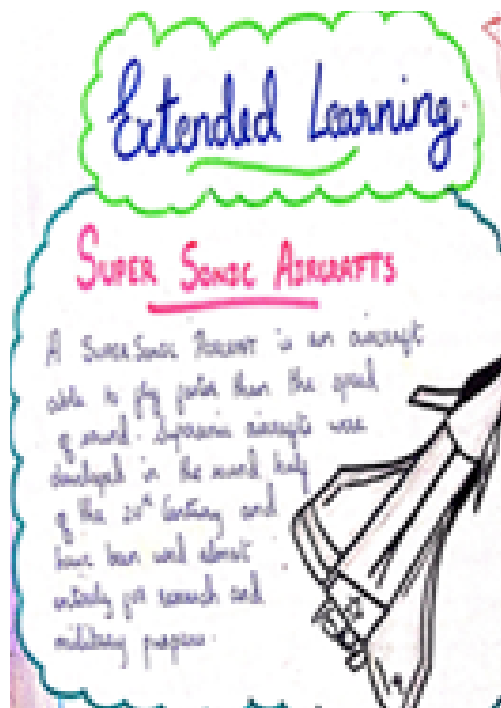 Extended Learning
SUPER SONIC AIRCRAFTS
A SUPER SONIC AIRCRAFT is an aircraft
able to fly faster than the speed
of sound. Supersonic aircrafts were
developed in the second half
of the 20th Century and
have been used almost
entirely for research and
military purposes.